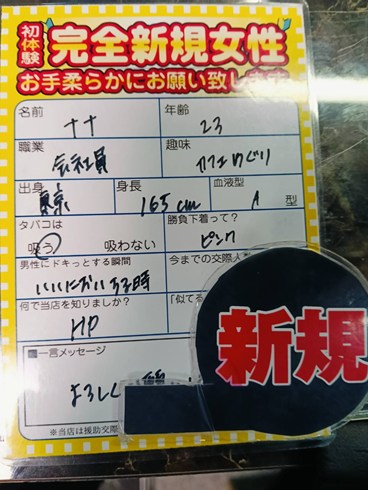 初体験 完全新規女性
お手柔らかにお願い致します
名前 ナナ 年齢 23
職業 会社員 趣味 カフェめぐり
出身 東京 身長 165cm 血液型 A 型
タバコは 吸う 吸わない 勝負下着って? ピンク
男性にドキっとする瞬間 いいにおいする時 今までの交際人
何で当店を知りましたか? HP 「似てる
一言メッセージ
よろしく
新規
※当店は援助交際